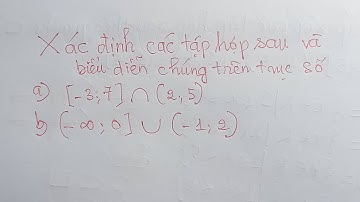 Xác định các tập hợp sau và
biểu diễn chúng trên trục số
a) [-3; 7] ∩ (2, 5)
b) (-∞; 0] ∪ (-1; 2)